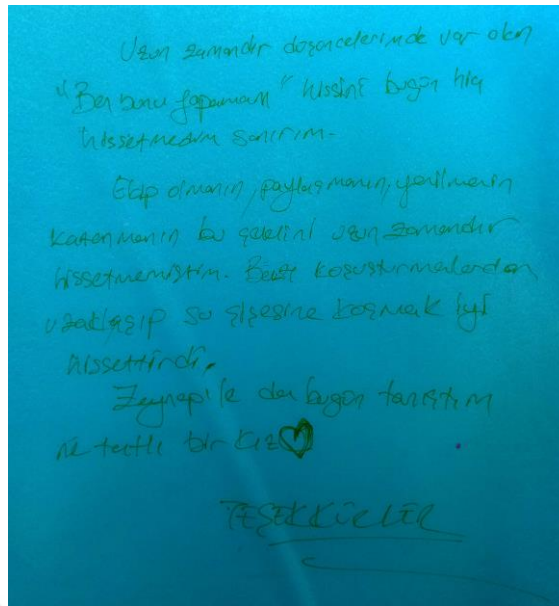 Uzun zamandır düşüncelerimde var olan
"Ben bunu yapamam" hissini bugün hiç
hissetmedim sanırım.
Ekip olmanın, paylaşmanın, yenilmenin
kazanmanın bu şeklini uzun zamandır
hissetmemiştim. Bazı koşuşturmalardan
uzaklaşıp su şişesine koşmak iyi
hissettirdi.
Zeynep ile de bugün tanıştım
ne tatlı bir kız
TEŞEKKÜRLER